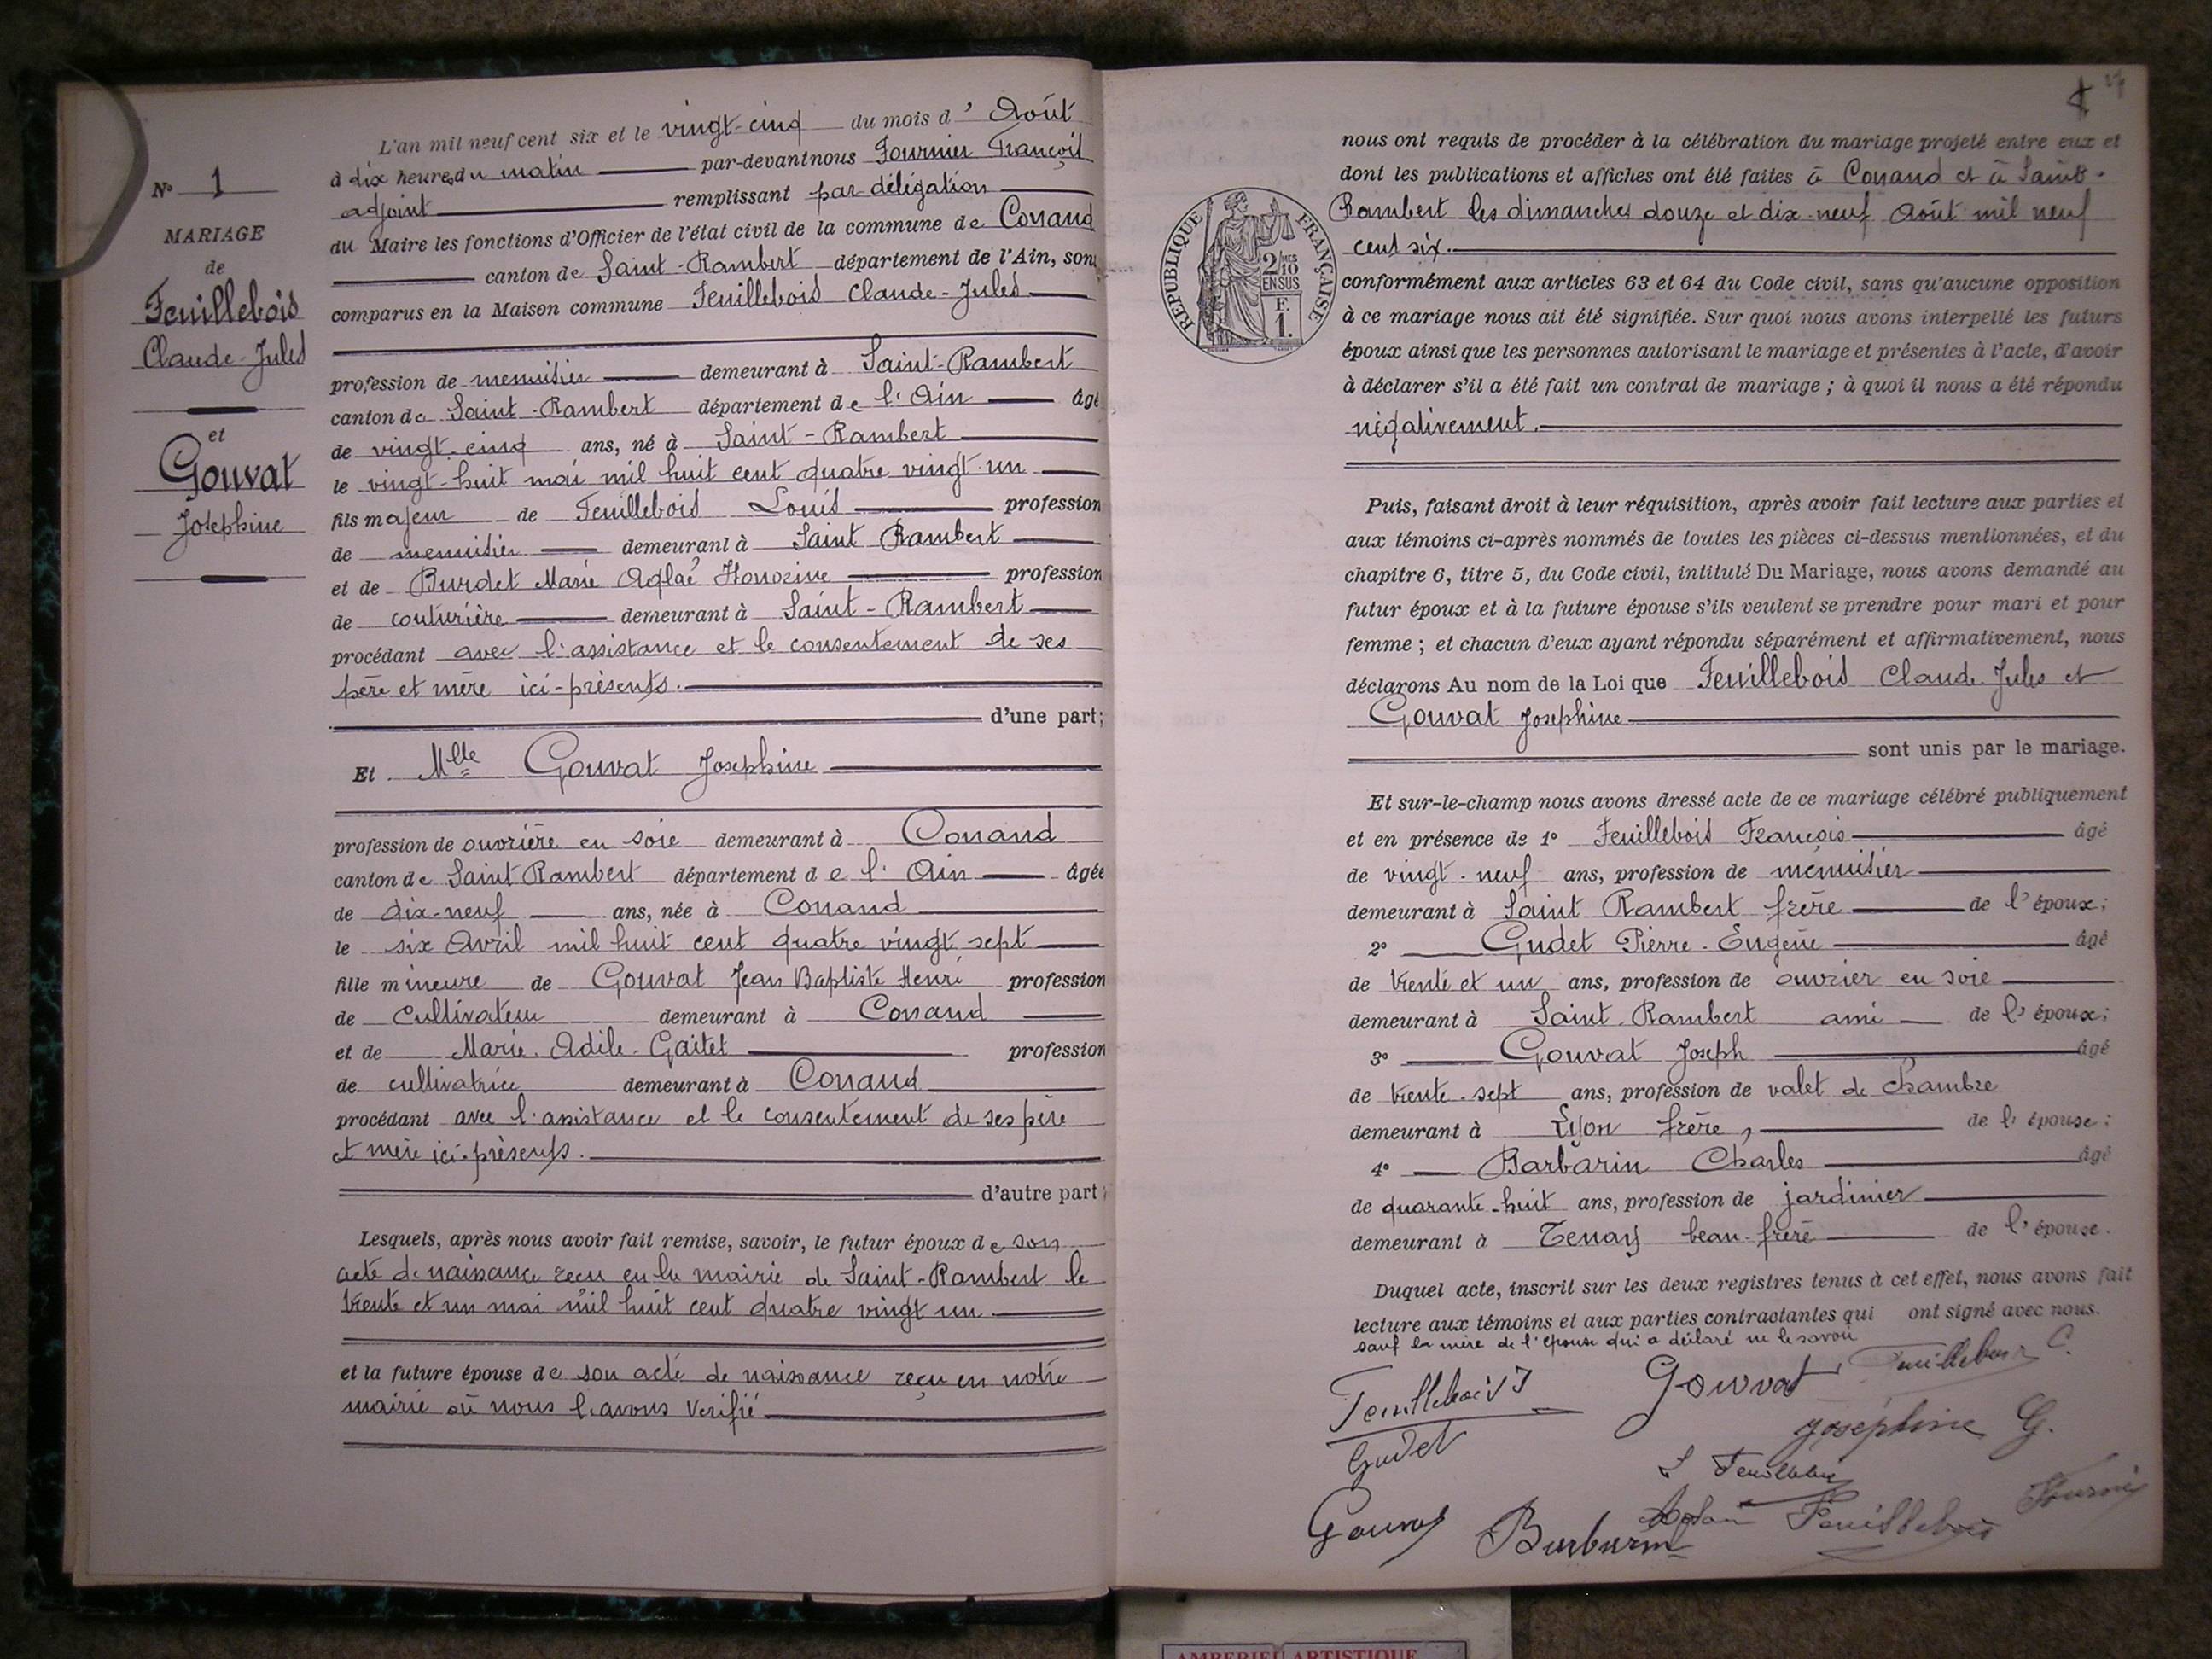 N° 1
MARIAGE
de
Feuillebois
Claude-Jules
et
Gouvat
Josephine
L'an mil neuf cent six et le vingt-cinq du mois d' Août
à dix heures du matin par-devant nous Fournier François
adjoint remplissant par délégation
du Maire les fonctions d'Officier de l'état civil de la commune de Conand
canton de Saint-Rambert département de l'Ain, sont
comparus en la Maison commune Feuillebois Claude-Jules
profession de menuisier demeurant à Saint-Rambert
canton de Saint-Rambert département de l'Ain âgé
de vingt-cinq ans, né à Saint-Rambert
le vingt-huit mai mil huit cent quatre vingt-un
fils majeur de Feuillebois Louis profession
de menuisier demeurant à Saint Rambert
et de Burdet Marie Aglaé Honorine profession
de couturière demeurant à Saint-Rambert
procédant avec l'assistance et le consentement de ses
père et mère ici-présents.
d'une part;
Et Mlle Gouvat Josephine
profession de ouvrière en soie demeurant à Conand
canton de Saint Rambert département de l'Ain âgée
de dix-neuf ans, née à Conand
le six Avril mil huit cent quatre vingt sept
fille mineure de Gouvat Jean Baptiste Henri profession
de Cultivateur demeurant à Conand
et de Marie-Adile-Gaitet profession
de cultivatrice demeurant à Conand
procédant avec l'assistance et le consentement de ses père
et mère ici-présents.
d'autre part;
Lesquels, après nous avoir fait remise, savoir, le futur époux de son
acte de naissance reçu en la mairie de Saint-Rambert le
trente et un mai mil huit cent quatre vingt un.
et la future épouse de son acte de naissance reçu en notre
mairie où nous l'avons vérifié
nous ont requis de procéder à la célébration du mariage projeté entre eux et
dont les publications et affiches ont été faites à Conand et à Saint-
Rambert les dimanches douze et dix-neuf Août mil neuf
cent six.
RÉPUBLIQUE FRANÇAISE
2/10 MES
EN SUS
F.
1.
conformément aux articles 63 et 64 du Code civil, sans qu'aucune opposition
à ce mariage nous ait été signifiée. Sur quoi nous avons interpellé les futurs
époux ainsi que les personnes autorisant le mariage et présentes à l'acte, d'avoir
à déclarer s'il a été fait un contrat de mariage ; à quoi il nous a été répondu
négativement.
Puis, faisant droit à leur réquisition, après avoir fait lecture aux parties et
aux témoins ci-après nommés de toutes les pièces ci-dessus mentionnées, et du
chapitre 6, titre 5, du Code civil, intitulé Du Mariage, nous avons demandé au
futur époux et à la future épouse s'ils veulent se prendre pour mari et pour
femme ; et chacun d'eux ayant répondu séparément et affirmativement, nous
déclarons Au nom de la Loi que Feuillebois Claude-Jules et
Gouvat Josephine
sont unis par le mariage.
Et sur-le-champ nous avons dressé acte de ce mariage célébré publiquement
et en présence de 1° Feuillebois François âgé
de vingt-neuf ans, profession de menuisier
demeurant à Saint Rambert frère de l'époux;
2° Gudet Pierre-Eugène âgé
de trente et un ans, profession de ouvrier en soie
demeurant à Saint-Rambert ami de l'époux;
3° Gouvat Joseph âgé
de trente-sept ans, profession de valet de chambre
demeurant à Lyon frère, de l'épouse;
4° Barbarin Charles âgé
de quarante-huit ans, profession de jardinier
demeurant à Tenay beau-frère de l'épouse.
Duquel acte, inscrit sur les deux registres tenus à cet effet, nous avons fait
lecture aux témoins et aux parties contractantes qui ont signé avec nous.
sauf la mère de l'épouse qui a déclaré ne le savoir
Feuillebois J Gouvat Feuillebois C.
Gudet Joséphine G.
L Feuillebois
Gouvat Barbarin Feuillebois Fournier
AMBERIEU ARTISTIQUE